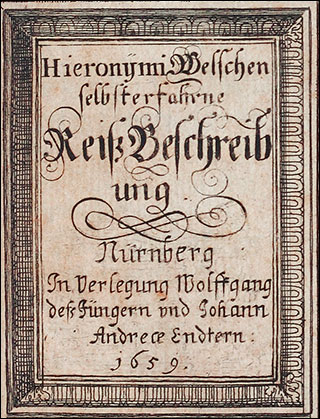 Hieronÿmi Welschen
selbsterfahrne
Reiß Beschreib
ung.
Nürnberg
In Verlegung Wolffgang
deß Jüngern vnd Johann
Andreæ Endtern:
1659.